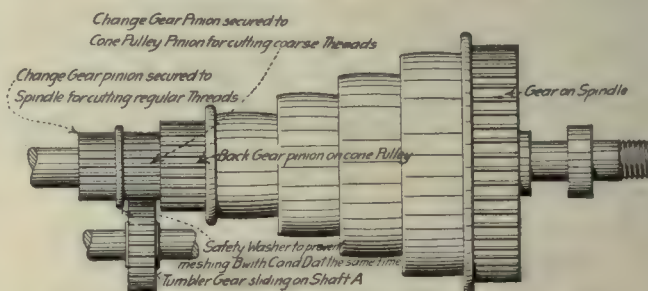 Change Gear Pinion secured to
Cone Pulley Pinion for cutting coarse Threads
Change Gear pinion secured to
Spindle for cutting regular Threads
Gear on Spindle
Back Gear pinion on cone Pulley
Safety Washer to prevent
meshing B with C and D at the same time
Tumbler Gear sliding on Shaft A